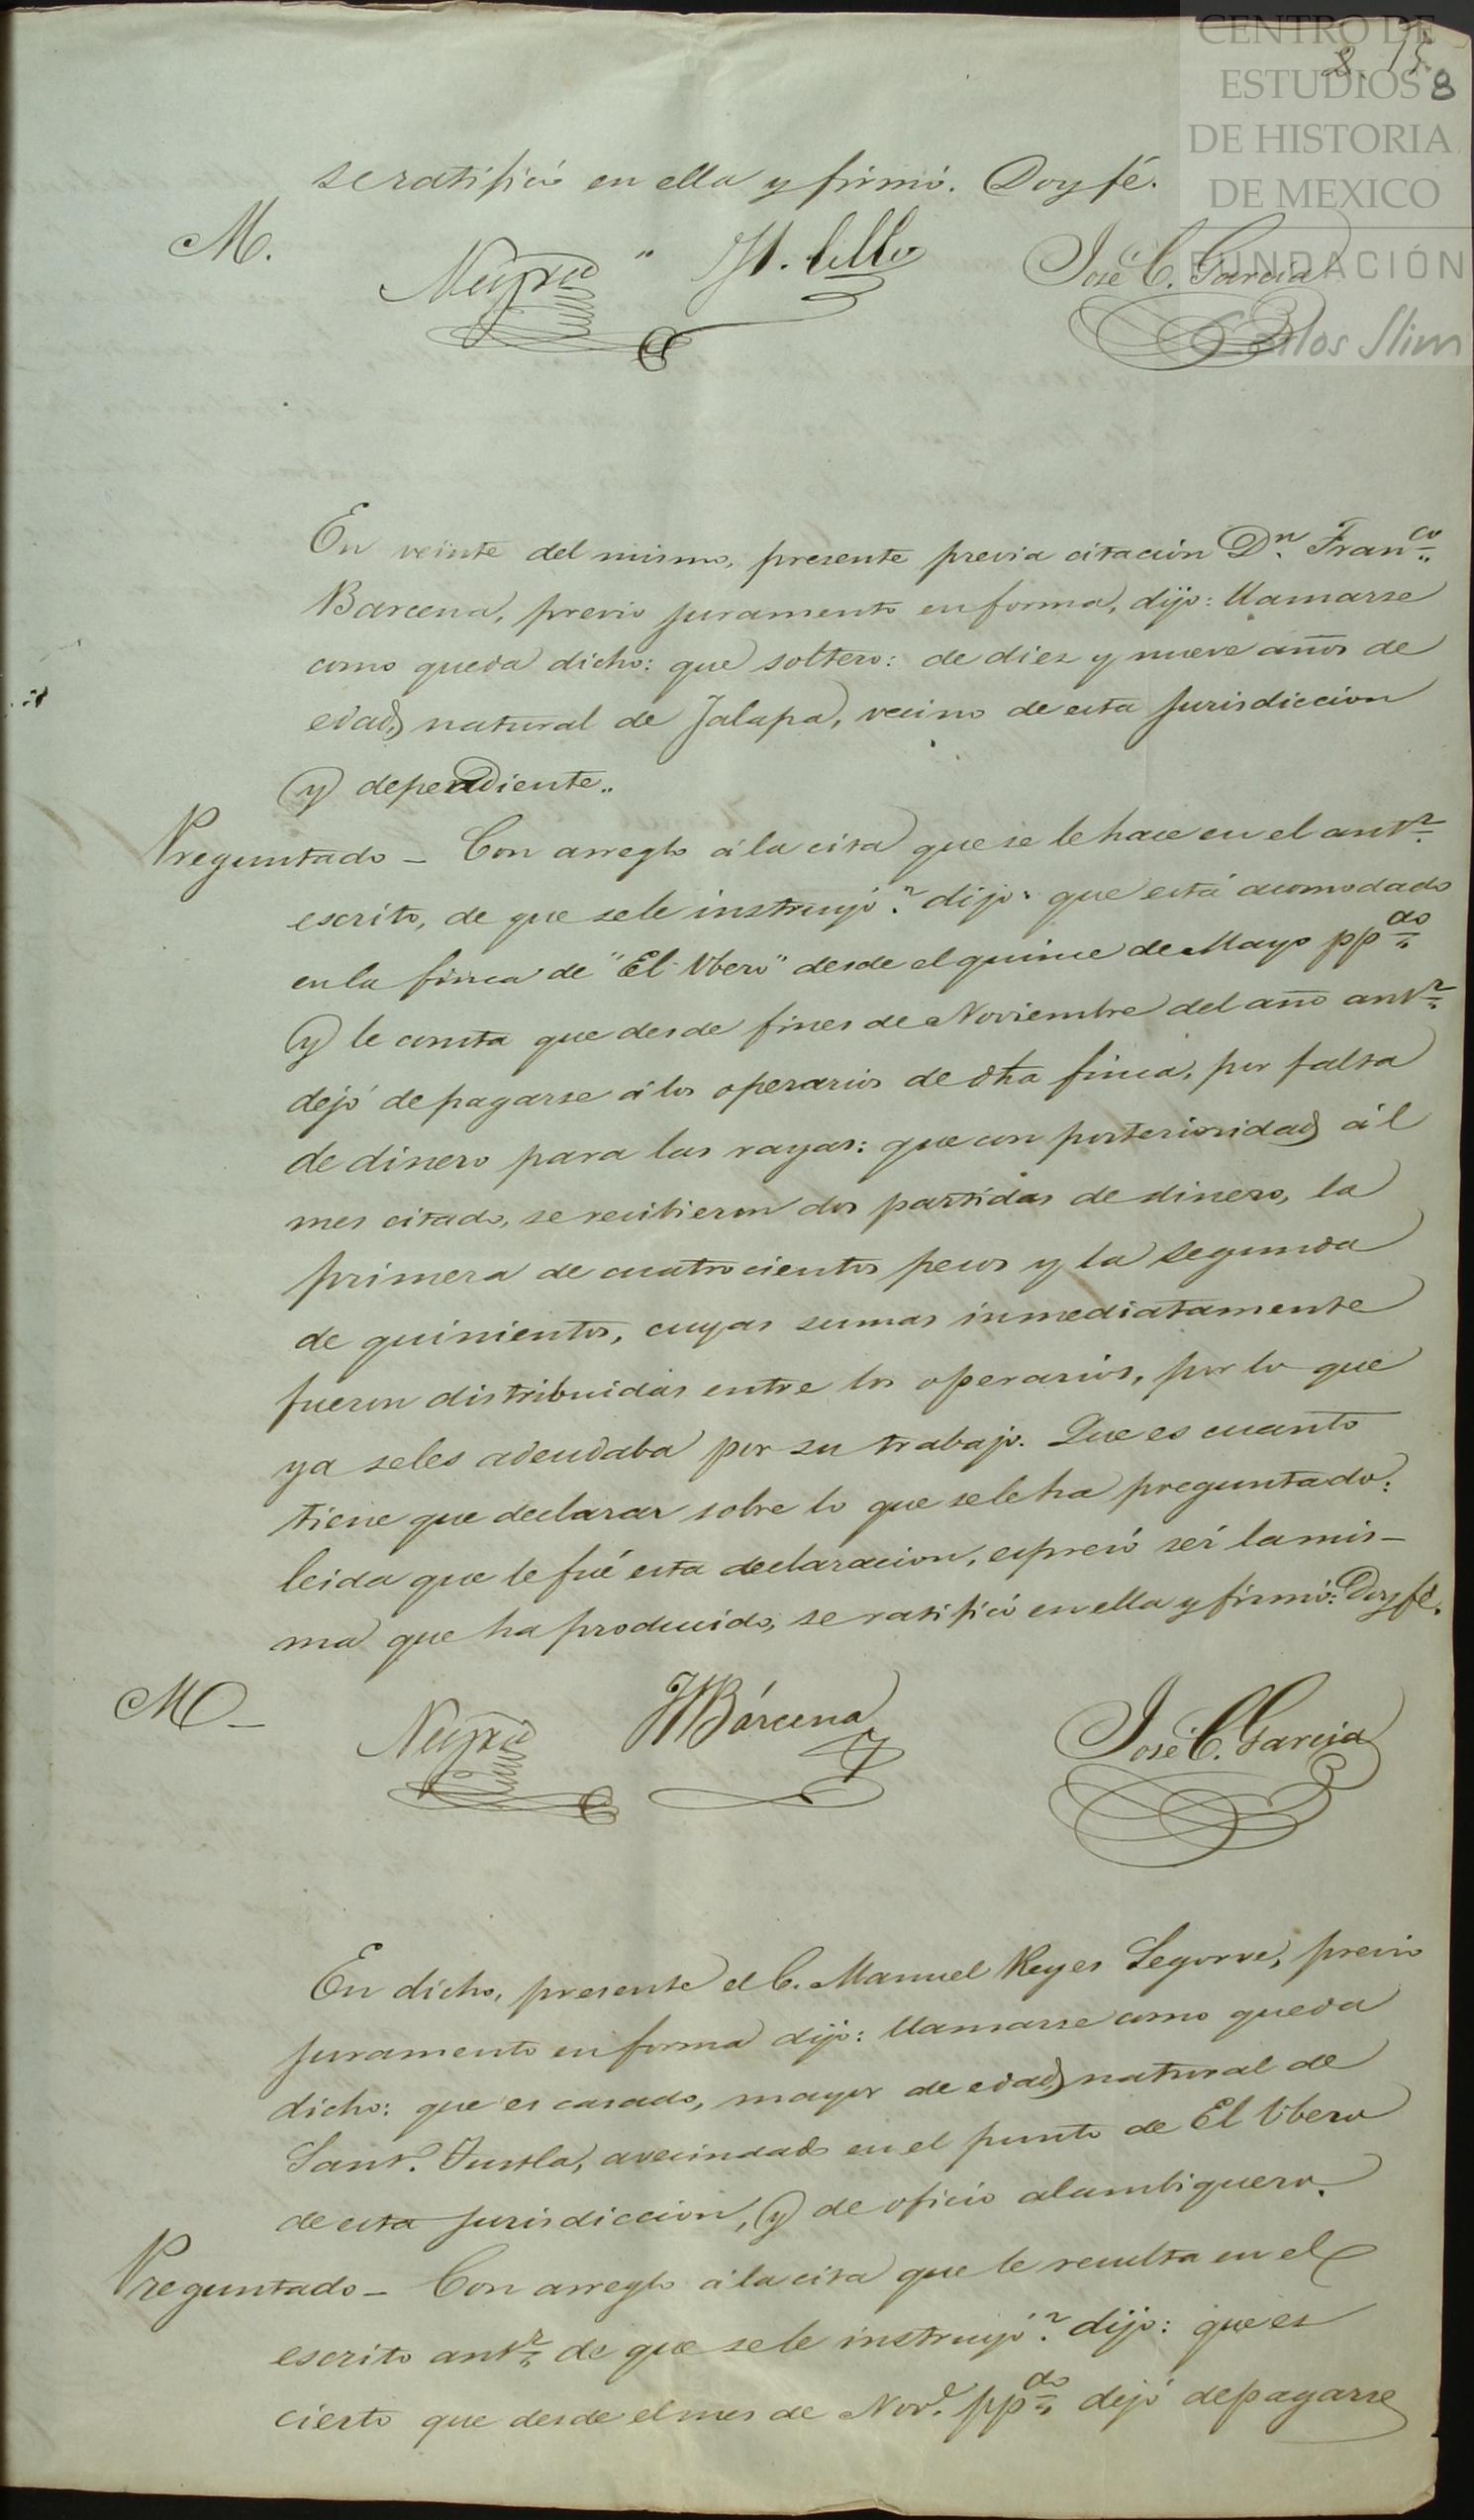 CENTRO DE
ESTUDIOS 8
DE HISTORIA
DE MEXICO
FUNDACIÓN
Carlos Slim
se ratificó en ella y firmó. Doy fé.
M.
José C. García
En veinte del mismo, presente previa citación Dn. Franco.
Barcena, previo juramento en forma, dijo: llamarse
como queda dicho: que soltero: de diez y nueve años de
edad, natural de Jalapa, vecino de esta jurisdiccion
y dependiente..
Preguntado - Con arreglo á la cita que se le hace en el antr.
escrito, de que se le instruyó? dijo: que está acomodado
en la finca de "El Ubero" desde el quince de Mayo ppdo.
y le consta que desde fines de Noviembre del año antr.
dejó de pagarse á los operarios de dha finca, por falta
de dinero para las rayas: que con posterioridad ál
mes citado, se recibieron dos partidas de dinero, la
primera de cuatrocientos pesos y la segunda
de quinientos, cuyas sumas inmediatamente
fueron distribuidas entre los operarios, por lo que
ya se les adeudaba por su trabajo. Que es cuanto
tiene que declarar sobre lo que se le ha preguntado:
leida que le fué esta declaracion, espresó ser la mis-
ma que ha producido, se ratificó en ella y firmó: Doy fé.
M -
Bárcena
José C. García
En dicho, presente el C. Manuel Reyes Legorre, previo
juramento en forma dijo: llamarse como queda
dicho: que es casado, mayor de edad, natural de
Sant. Tuxtla, avecindado en el punto de El Ubero
de esta jurisdiccion, y de oficio alambiquero.
Preguntado - Con arreglo á la cita que le resulta en el
escrito antr. de que se le instruyó? dijo: que es
cierto que desde el mes de Nove. ppdo. dejó de pagarse